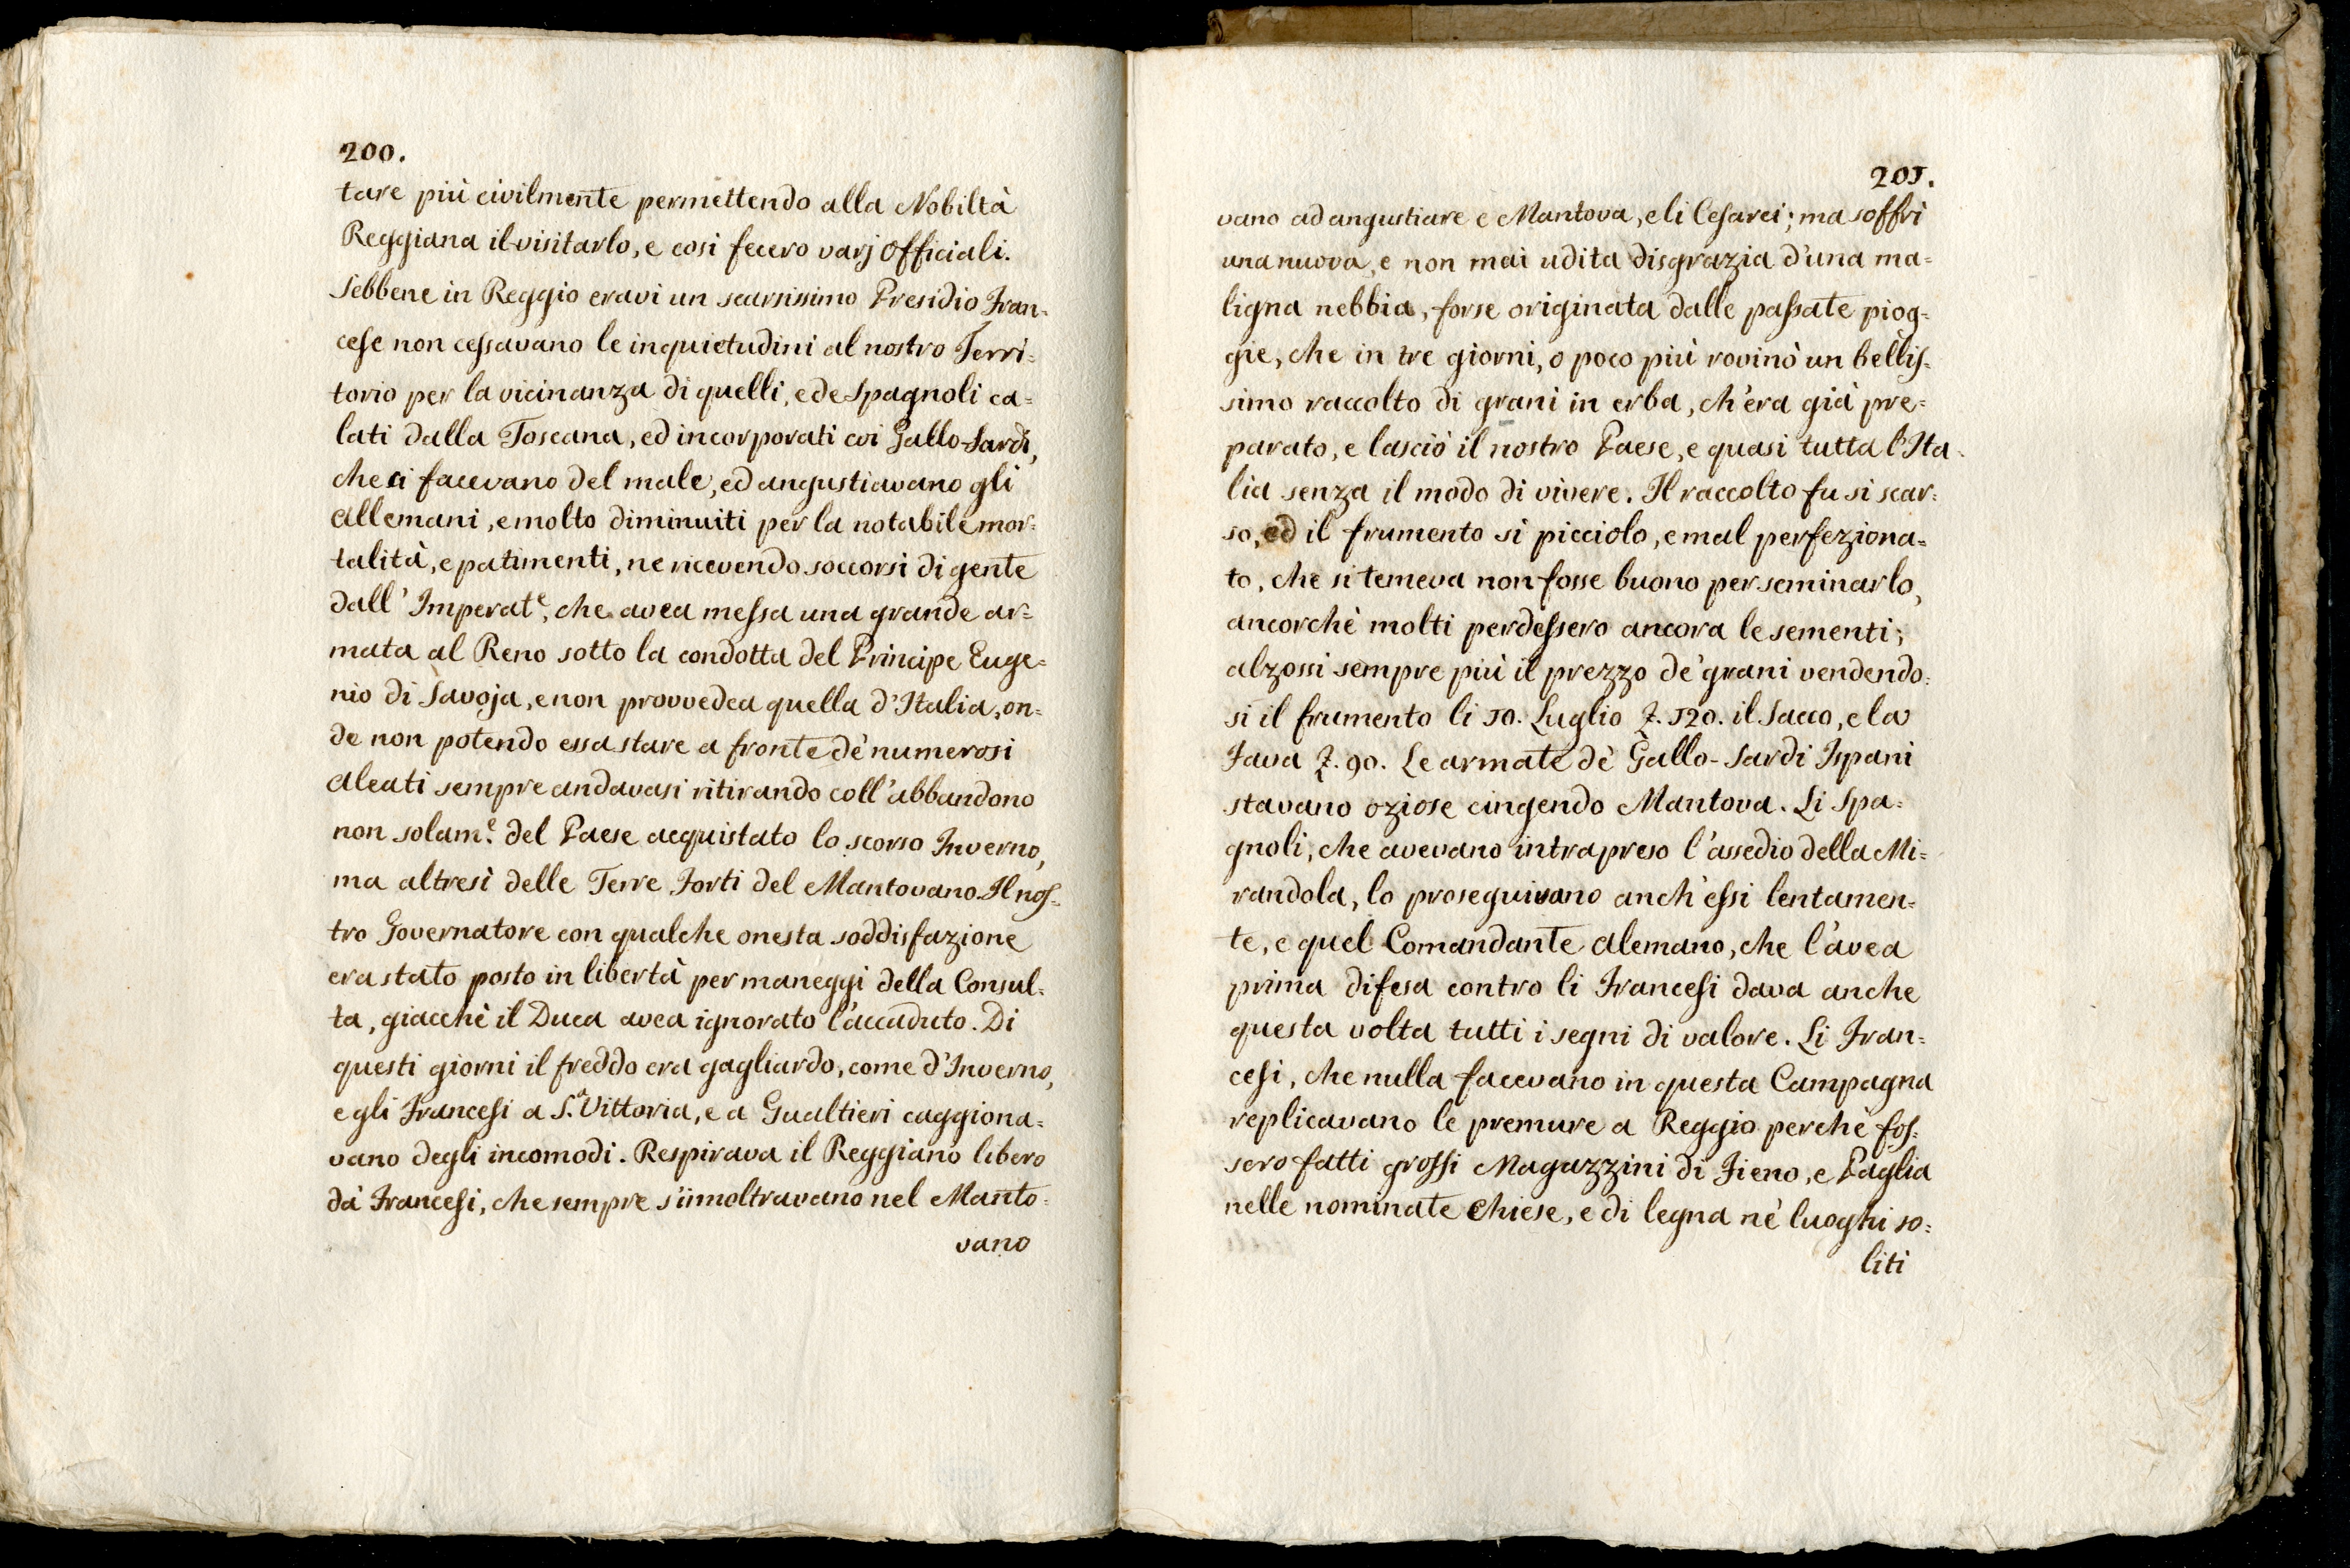 200.
tare più civilmente permettendo alla Nobiltà
Reggiana il visitarlo, e così fecero varj Officiali.
Sebbene in Reggio eravi un scarsissimo Presidio Fran-
cese non cessavano le inquietudini al nostro Terri=
torio per la vicinanza di quelli, e de Spagnoli ca=
lati dalla Toscana, ed incorporati coi Gallo-Sardi,
che ci facevano del male, ed angustiavano gli
Allemani, e molto diminuiti per la notabile mor=
talità, e patimenti, ne ricevendo soccorsi di gente
dall' Imperat.e, che avea messa una grande ar=
mata al Reno sotto la condotta del Principe Euge=
nio di Savoja, e non provvedea quella d'Italia, on=
de non potendo essa stare a fronte dè numerosi
Aleati sempre andavasi ritirando coll'abbandono
non solam.e del Paese acquistato lo scorso Inverno,
ma altresì delle Terre Forti del Mantovano. Il nos=
tro Governatore con qualche onesta soddisfazione
era stato posto in libertà per maneggi della Consul=
ta, giacchè il Duca avea ignorato l'accaduto. Di
questi giorni il freddo era gagliardo, come d'Inverno,
e gli Francesi a S.a Vittoria, e a Gualtieri caggiona=
vano degli incomodi. Respirava il Reggiano libero
dà Francesi, che sempre s'innoltravano nel Manto=
vano
201.
vano ad angustiare e Mantova, e li Cesarei; ma soffrì
una nuova, e non mai udita disgrazia d'una ma=
ligna nebbia, forse originata dalle passate piog=
gie, che in tre giorni, o poco più rovinò un bellis=
simo raccolto di grani in erba, ch'era già pre=
parato, e lasciò il nostro Paese, e quasi tutta l'Ita=
lia senza il modo di vivere. Il raccolto fu si scar=
so, ed il frumento sì picciolo, e mal perfeziona=
to, che si temeva non fosse buono per seminarlo,
ancorchè molti perdessero ancora le sementi;
alzossi sempre più il prezzo dè grani vendendo=
si il frumento li 10. Luglio £. 120. il Sacco, e la
Fava £. 90. Le armate dè Gallo-Sardi Ispani
stavano oziose cingendo Mantova. Li Spa=
gnoli, che avevano intrapreso l'assedio della Mi=
randola, lo proseguivano anch'essi lentamen=
te, e quel Comandante Alemano, che l'avea
prima difesa contro li Francesi dava anche
questa volta tutti i segni di valore. Li Fran=
cesi, che nulla facevano in questa Campagna
replicavano le premure a Reggio perchè fos=
sero fatti grossi Magazzini di Fieno, e Paglia
nelle nominate Chiese, e di legna nè luoghi so=
liti